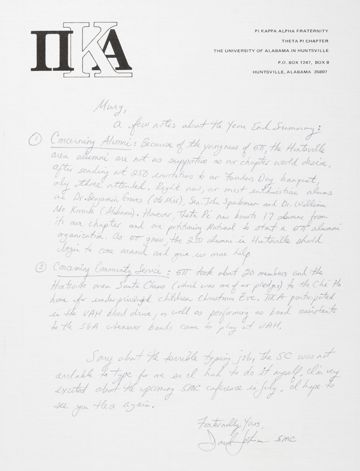 ΠΚΑ
PI KAPPA ALPHA FRATERNITY
THETA PI CHAPTER
THE UNIVERSITY OF ALABAMA IN HUNTSVILLE
P.O. BOX 1247, BOX 9
HUNTSVILLE, ALABAMA 35807
A few notes about the Year End Summary:
① Concerning Alumni: Because of the youngness of ΘΠ, the Huntsville
area alumni are not as supportive as our chapter would desire.
After sending out 250 invitations to our Founders Day banquet,
only three attended. Right now, our most enthusiastic alums
are Dr. Benjamin Graves (Ole Miss), Sen. John Sparkman and Dr. William
Mc (Alabama). However, Theta Pi now boasts 17 alumni from
its own chapter and are petitioning National to start a ΘΠ alumni
organization. As ΘΠ grows, the 250 alumni in Huntsville should
begin to come around and give us more help.
② Concerning Community Service: ΘΠ took about 20 members and the
Huntsville area Santa Claus (which was one of our pledges) to the
home for underprivileged children Christmas Eve. ΠΚΑ participated
in the UAH blood drive, as well as performing as band assistants
to the SGA whenever bands come to play at UAH.
Sorry about the terrible typing job, the SC was not
available to type for me so I had to do it myself. I'm very
excited about the upcoming SMC conference in July, & hope to
see you then again.
Fraternally Yours,
David SMC